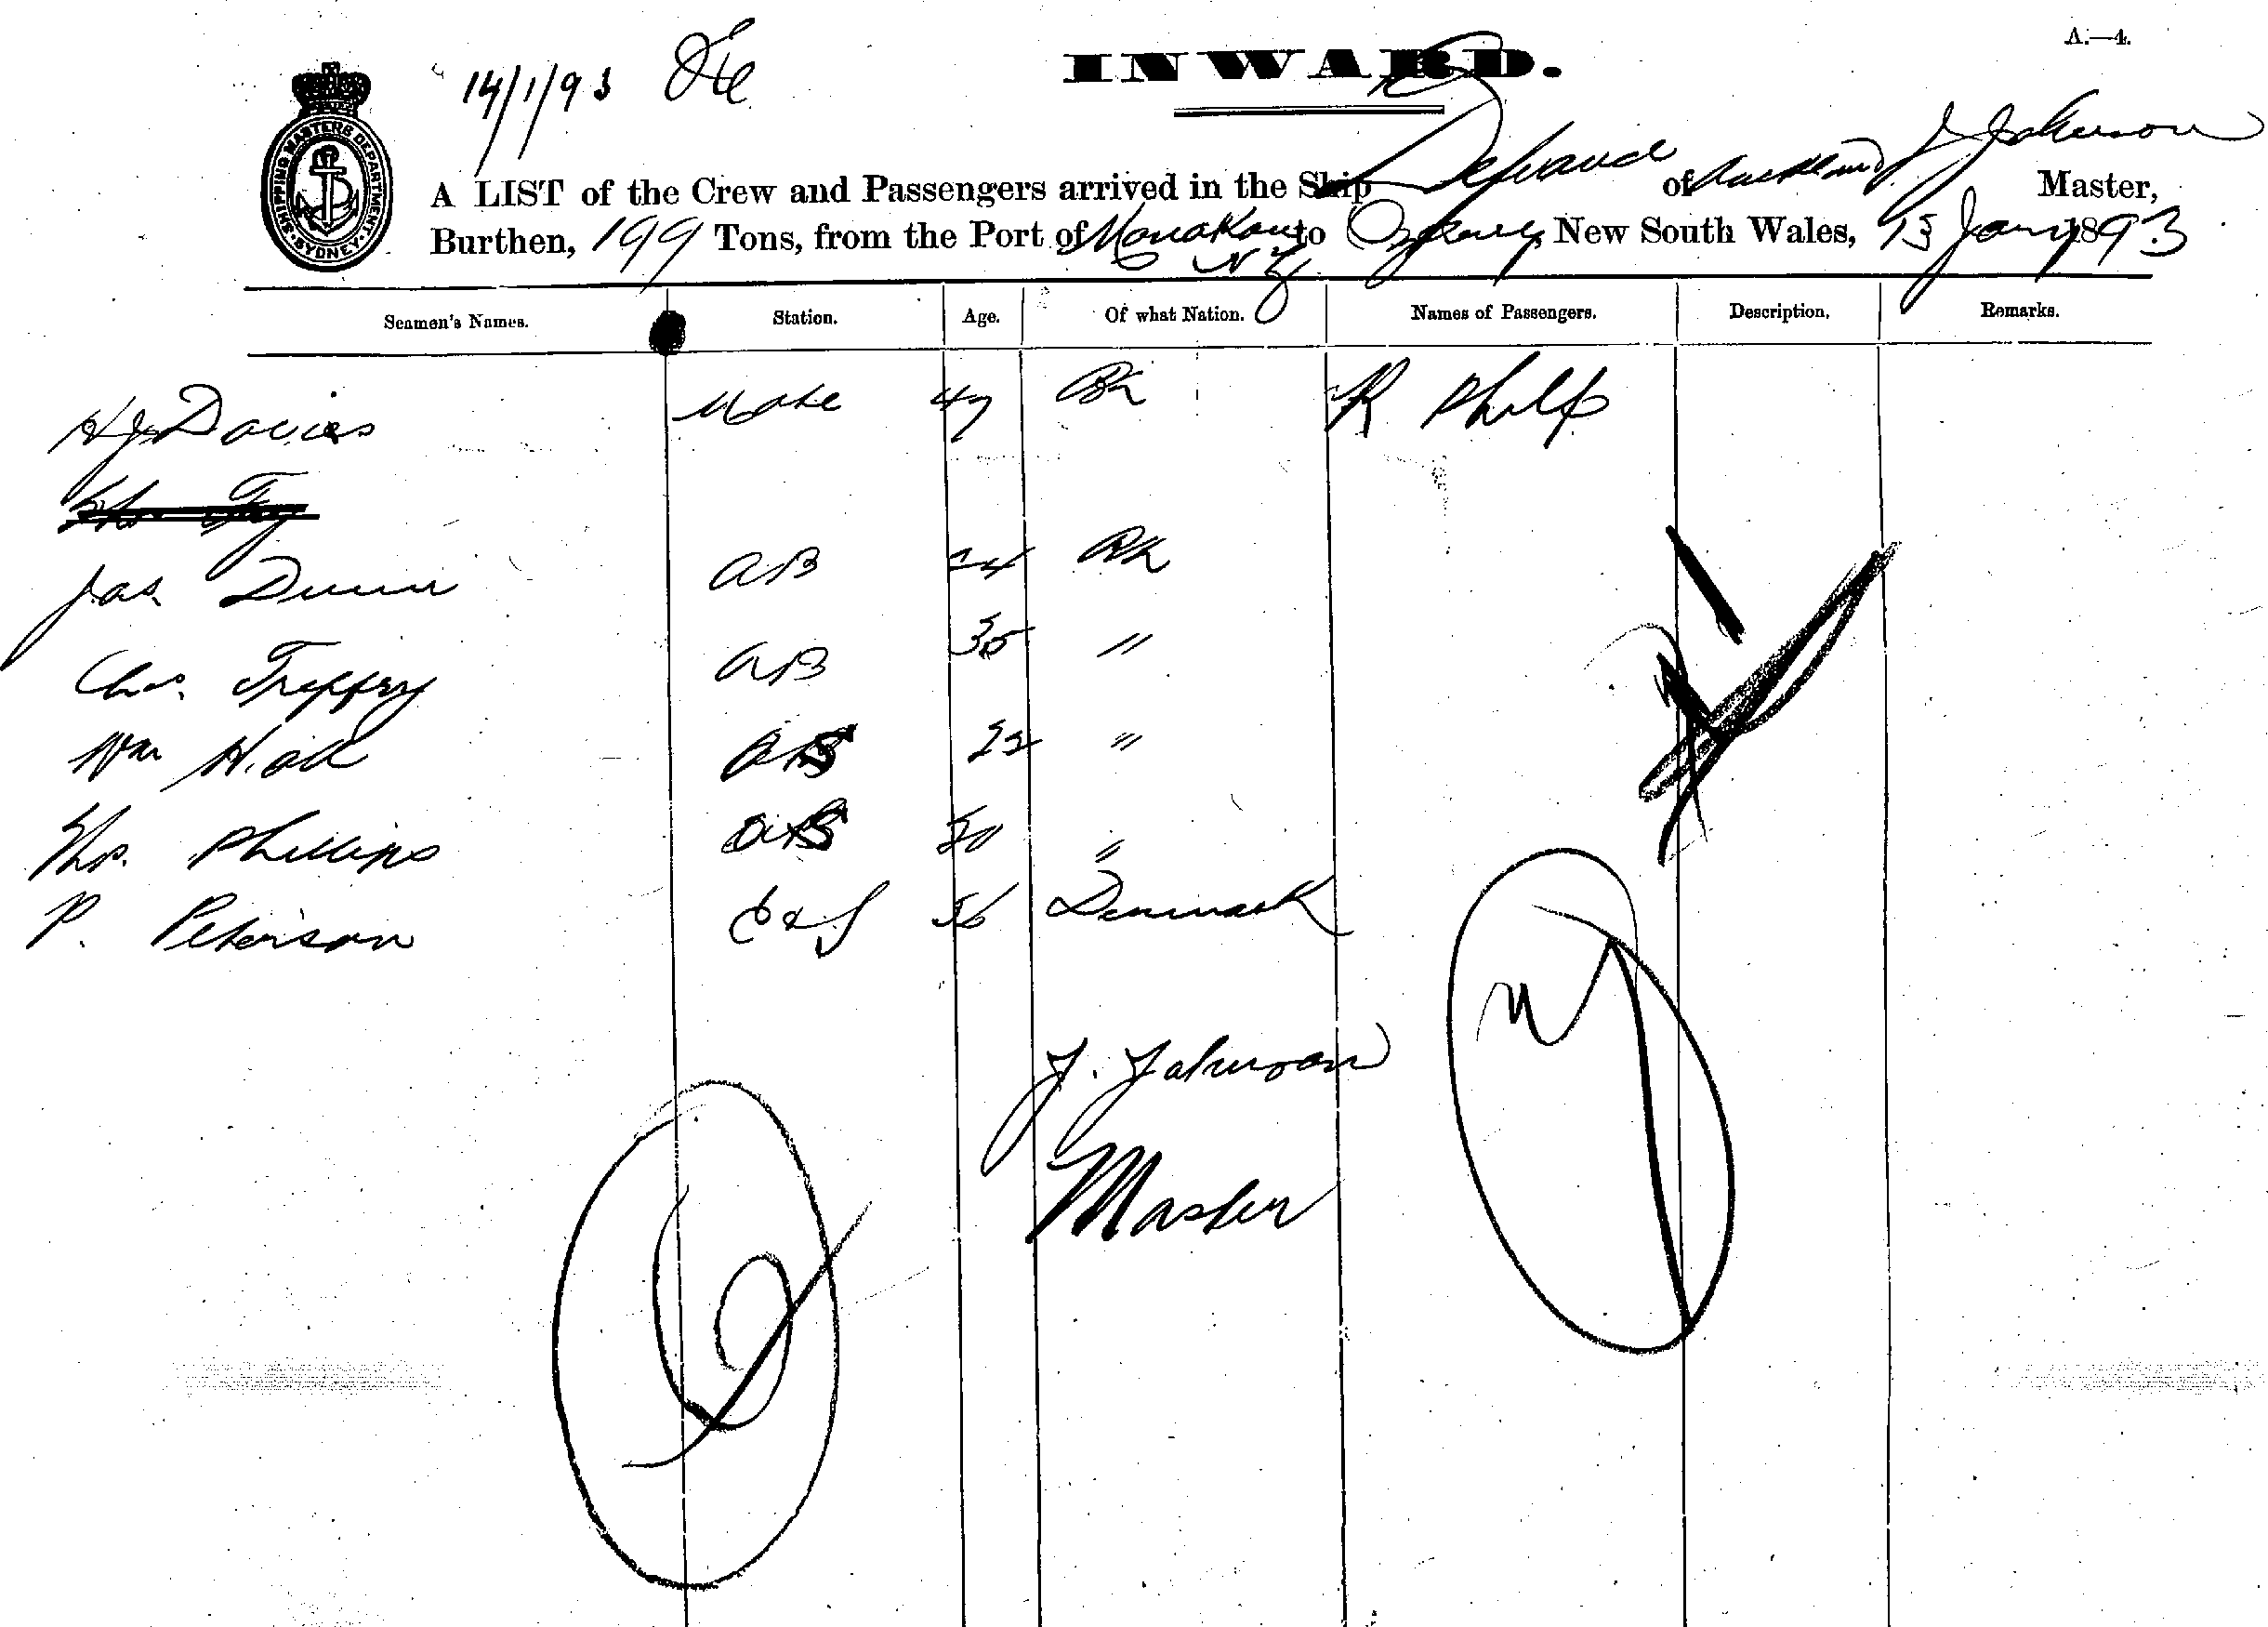 A.—4.
14/1/93
INWARD.
SHIPPING MASTERS DEPARTMENT. SYDNEY.
A LIST of the Crew and Passengers arrived in the Ship Defiance of Auckland, J Johnson Master,
Burthen, 199 Tons, from the Port of Manakau NZ to Sydney New South Wales, 13 Jany 1893.
Seamen's Names. Station. Age. Of what Nation. Names of Passengers. Description. Remarks.
Davies Mate 47 Bh R Philp
Jas. Dunn AB 24 Bh
Chas. Treffry AB 35 "
Wm 22 "
Thos. Phillips "
P. Peterson C & S 56 Denmark
J. Johnson
Master